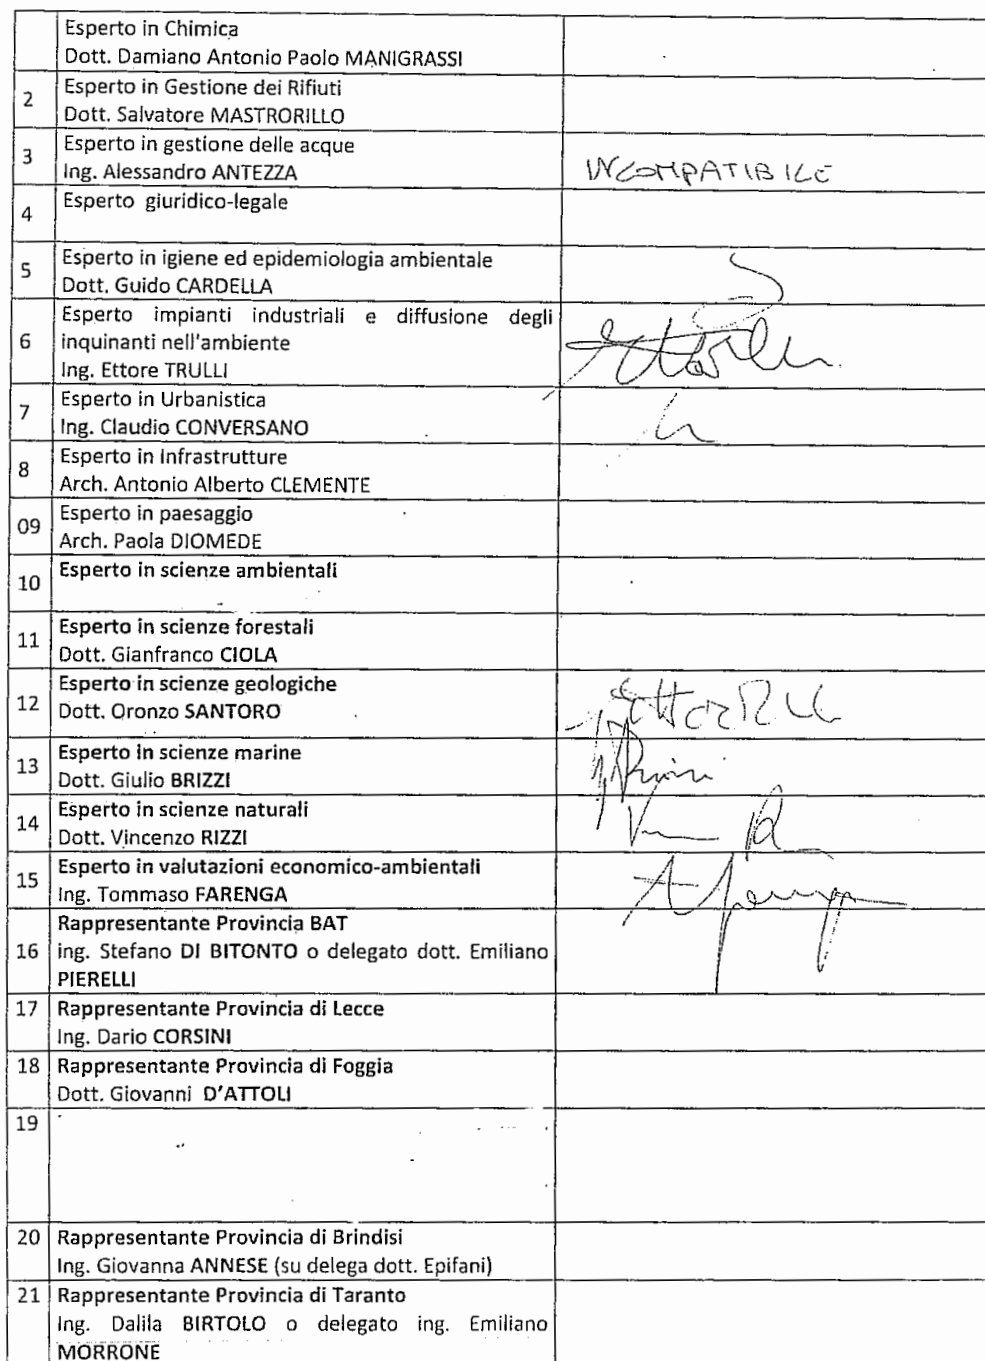 Esperto in Chimica
Dott. Damiano Antonio Paolo MANIGRASSI
2
Esperto in Gestione dei Rifiuti
Dott. Salvatore MASTRORILLO
3
Esperto in gestione delle acque
Ing. Alessandro ANTEZZA
INCOMPATIBILE
4
Esperto giuridico-legale
5
Esperto in igiene ed epidemiologia ambientale
Dott. Guido CARDELLA
6
Esperto impianti industriali e diffusione degli
inquinanti nell'ambiente
Ing. Ettore TRULLI
7
Esperto in Urbanistica
Ing. Claudio CONVERSANO
8
Esperto in Infrastrutture
Arch. Antonio Alberto CLEMENTE
09
Esperto in paesaggio
Arch. Paola DIOMEDE
10
Esperto in scienze ambientali
11
Esperto in scienze forestali
Dott. Gianfranco CIOLA
12
Esperto in scienze geologiche
Dott. Oronzo SANTORO
13
Esperto in scienze marine
Dott. Giulio BRIZZI
14
Esperto in scienze naturali
Dott. Vincenzo RIZZI
15
Esperto in valutazioni economico-ambientali
Ing. Tommaso FARENGA
16
Rappresentante Provincia BAT
ing. Stefano DI BITONTO o delegato dott. Emiliano
PIERELLI
17
Rappresentante Provincia di Lecce
Ing. Dario CORSINI
18
Rappresentante Provincia di Foggia
Dott. Giovanni D'ATTOLI
19
20
Rappresentante Provincia di Brindisi
Ing. Giovanna ANNESE (su delega dott. Epifani)
21
Rappresentante Provincia di Taranto
Ing. Dalila BIRTOLO o delegato ing. Emiliano
MORRONE